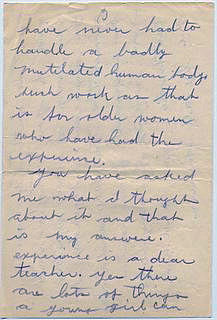 3
have never had to
handle a badly
mutilated human body
such work as that
is for older women
who have had the
experience.
You have asked
me what I thought
about it and that
is my answere.
experience is a dear
teacher. yes there
are lots of things
a young girl can